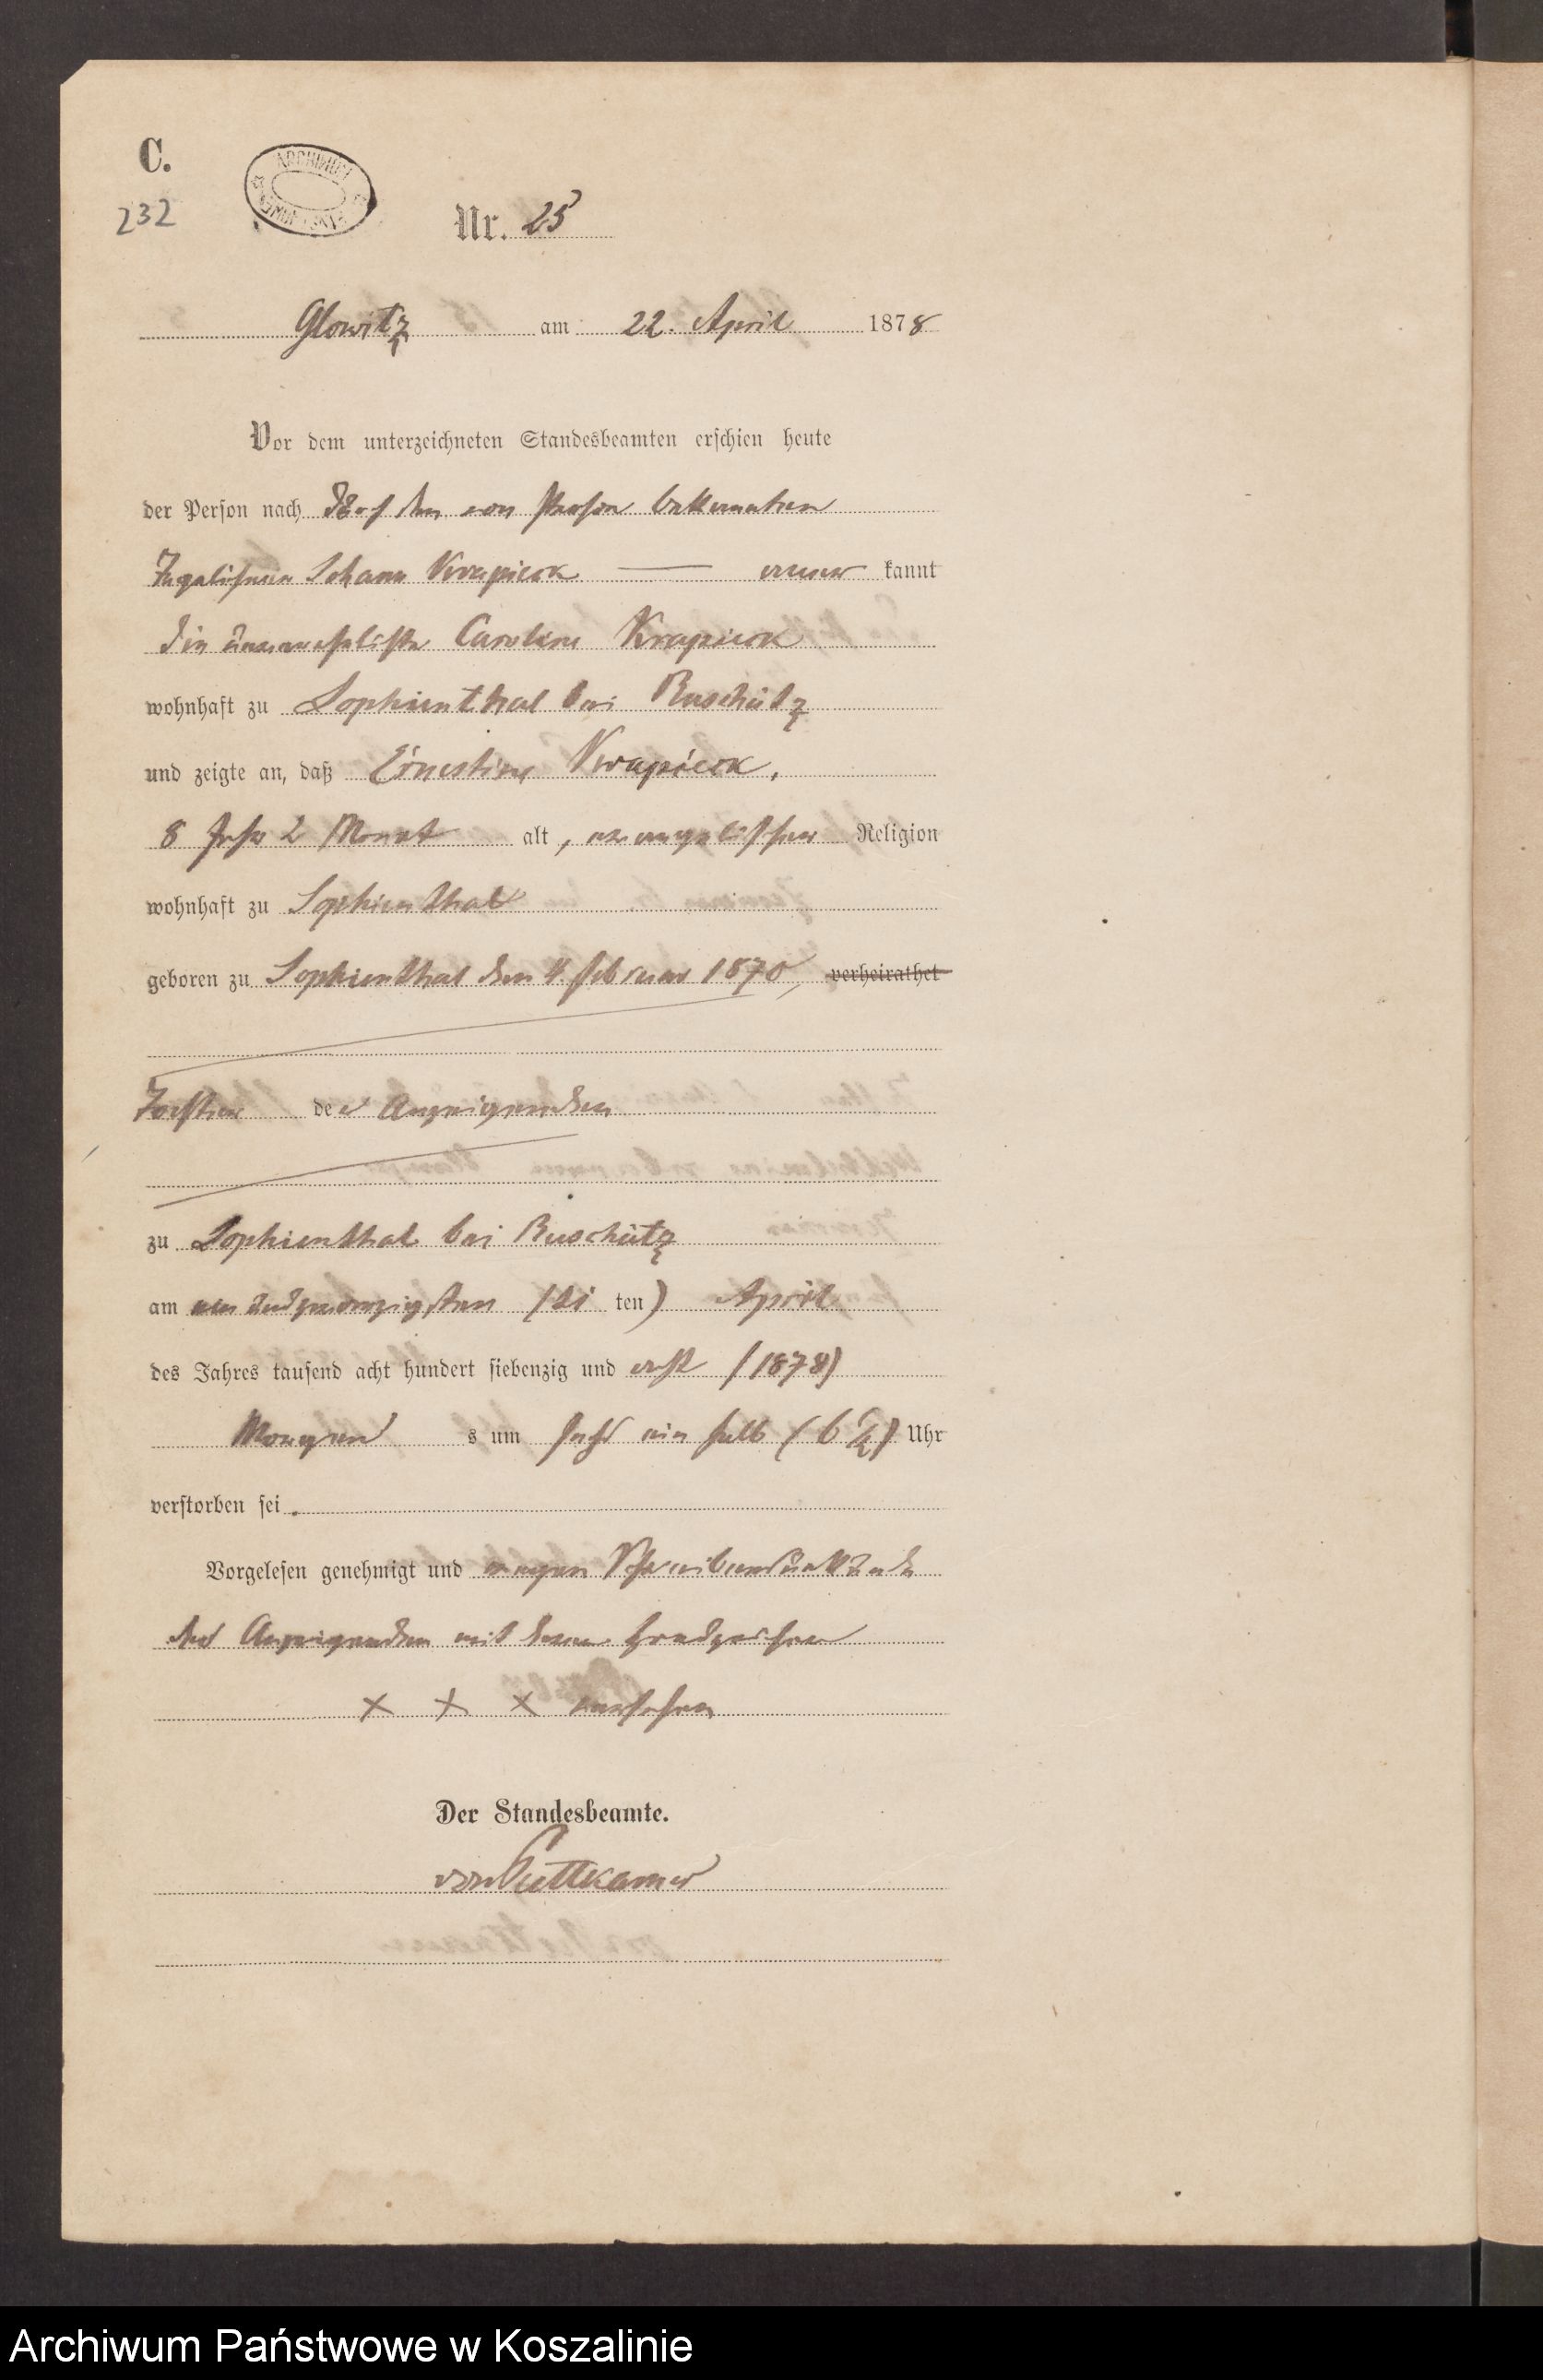 C.
232
ARCHIWUM
Nr. 25
Glowitz am 22. April 1878
Vor dem unterzeichneten Standesbeamten erschien heute
der Person nach durch den von Person bekannten
Johann Krapieck — aner kannt
die unverehelichte Caroline Krapieck
wohnhaft zu Sophienthal bei Ruschütz
und zeigte an, daß Ernestine Krapieck,
8 Jahr 2 Monat alt, evangelischer Religion
wohnhaft zu Sophienthal
geboren zu Sophienthal den 4. Februar 1870, verheirathet
Tochter der Anzeigenden
zu Sophienthal bei Ruschütz
am ein und zwanzigsten (21 ten) April
des Jahres tausend acht hundert siebenzig und acht (1878)
Morgens um sechs ein halb (6 1/2) Uhr
verstorben sei.
Vorgelesen genehmigt und wegen Schreibensunkunde
der Anzeigenden mit deren Handzeichen
x x x versehen
Der Standesbeamte.
von Puttkamer
Archiwum Państwowe w Koszalinie